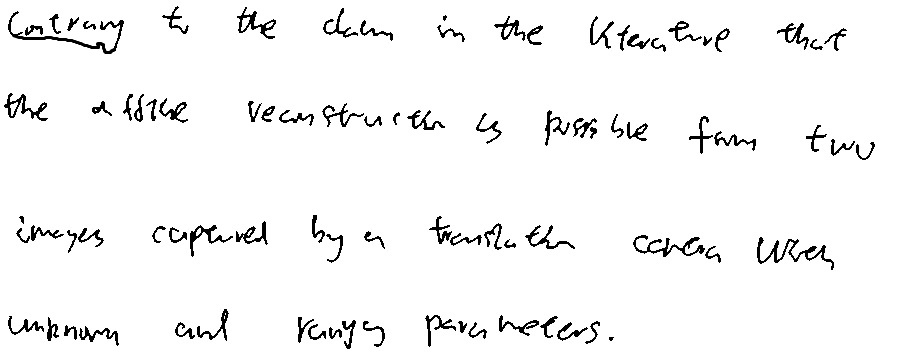 Contrary to the claim in the literature that
the affine reconstruction is possible from two
images captured by a translation camera with
unknown and varying parameters.